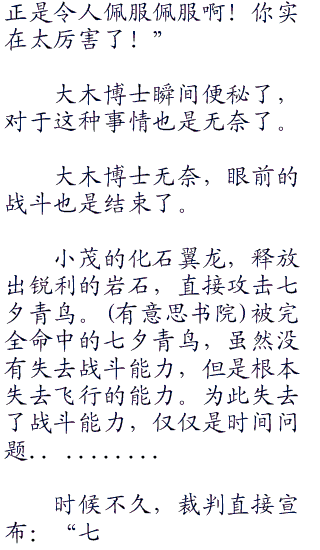 正是令人佩服佩服啊！你实
在太厉害了！”
大木博士瞬间便秘了，
对于这种事情也是无奈了。
大木博士无奈，眼前的
战斗也是结束了。
小茂的化石翼龙，释放
出锐利的岩石，直接攻击七
夕青鸟。(有意思书院)被完
全命中的七夕青鸟，虽然没
有失去战斗能力，但是根本
失去飞行的能力。为此失去
了战斗能力，仅仅是时间问
题.. ........
时候不久，裁判直接宣
布：“七